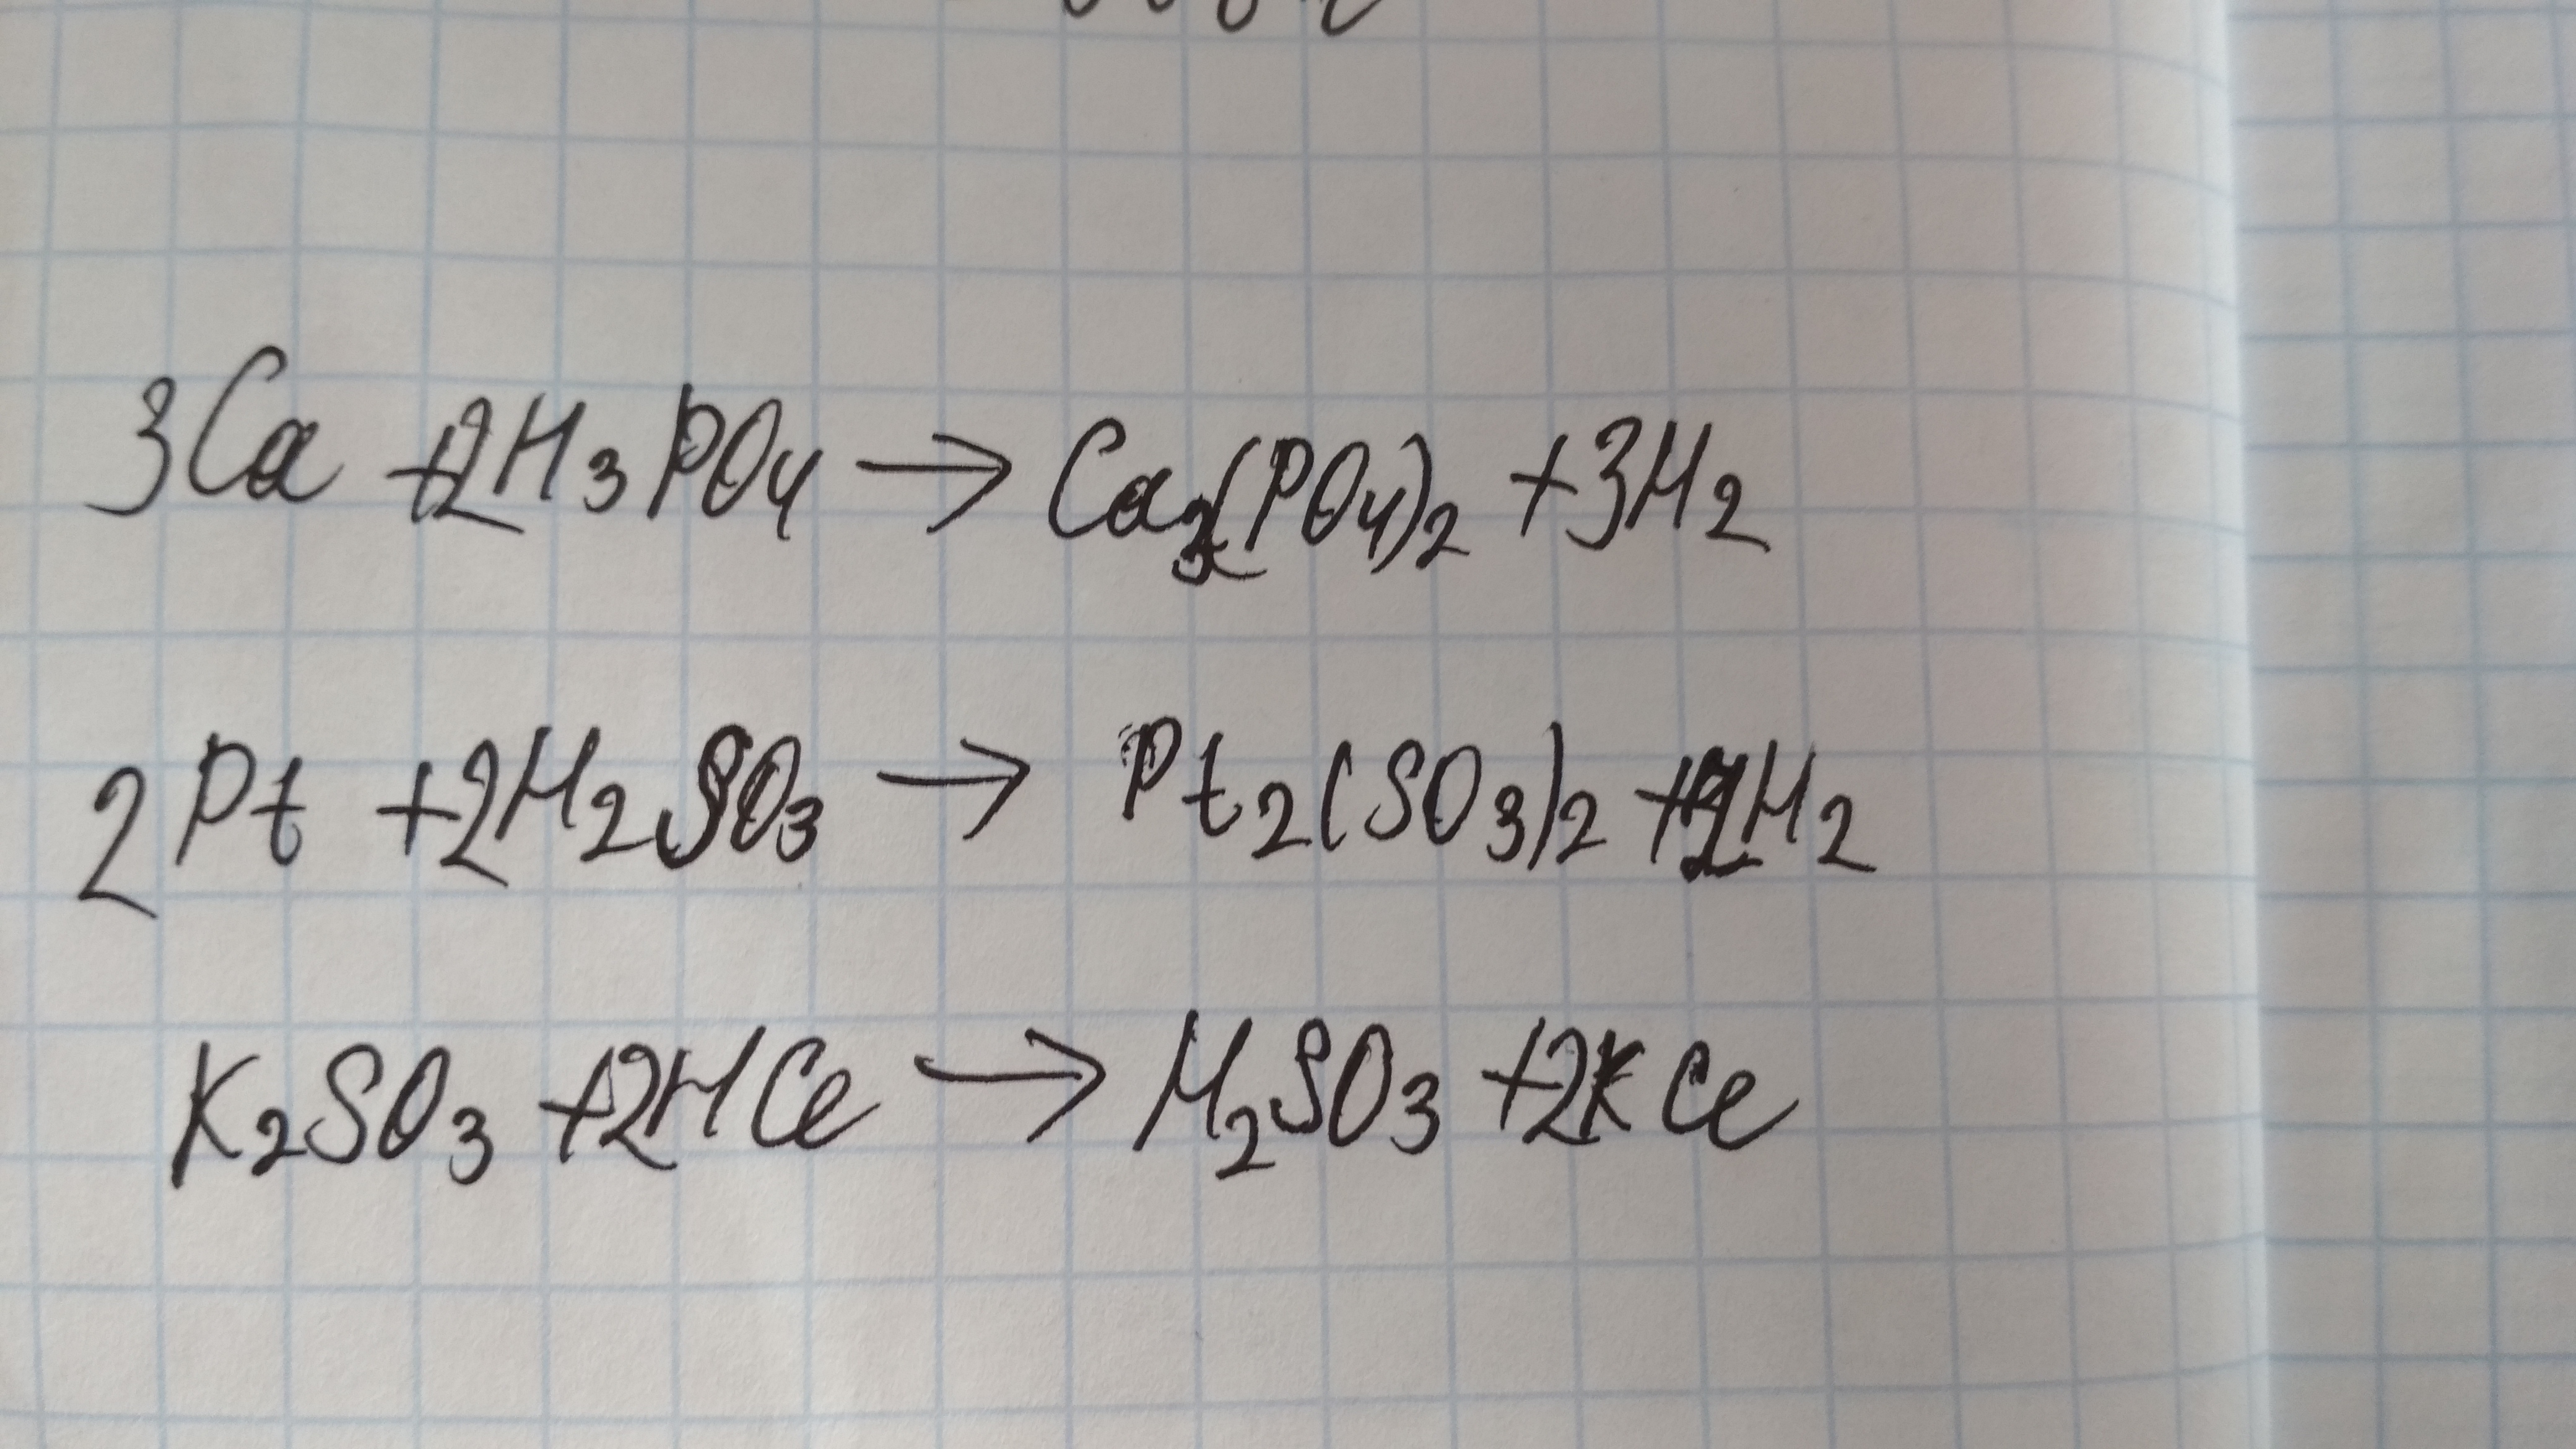 3Ca + 2H₃PO₄ → Ca₃(PO₄)₂ + 3H₂
2Pt + 2H₂SO₃ → Pt₂(SO₃)₂ + 2H₂
K₂SO₃ + 2HCl → H₂SO₃ + 2KCl